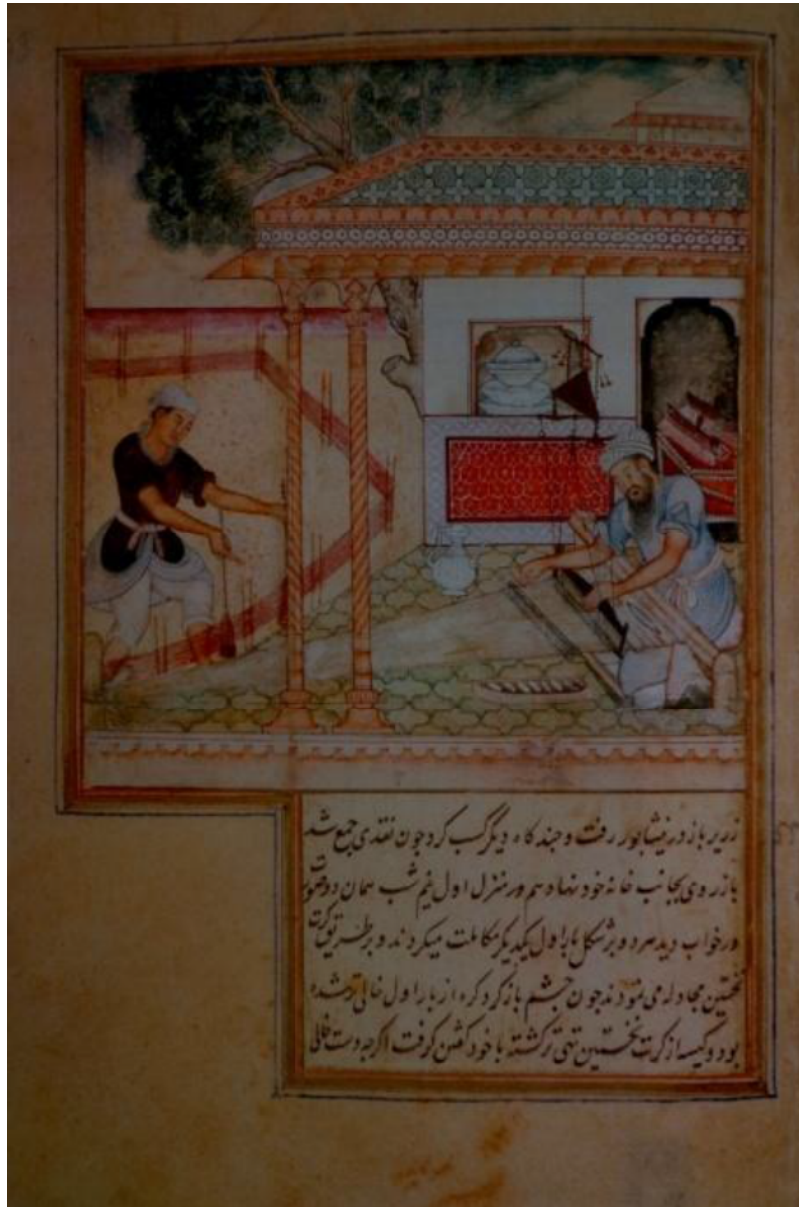 زریر باز در نیشابور رفت و چند کاه دیگر کسب کرد چون نقدی جمع شد
باز روی بجانب خانه خود نهاد هم در منزل اول نیم شب همان دو صوت
در خواب دید هر دو بر شکل بار اول یکدیگر مکالمت میکردند و بر طریق کرت
نخستین مجادله می نمودند چون چشم باز کرد کره از بار اول خالی تر شده
بود و کیسه از کرت نخستین تهی تر کشته با خود کفتن کرفت اکرچه دست خالی